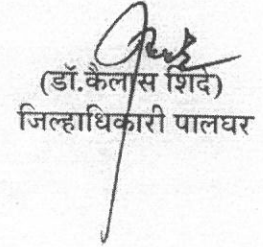 (डॉ.कैलास शिंदे)
जिल्हाधिकारी पालघर